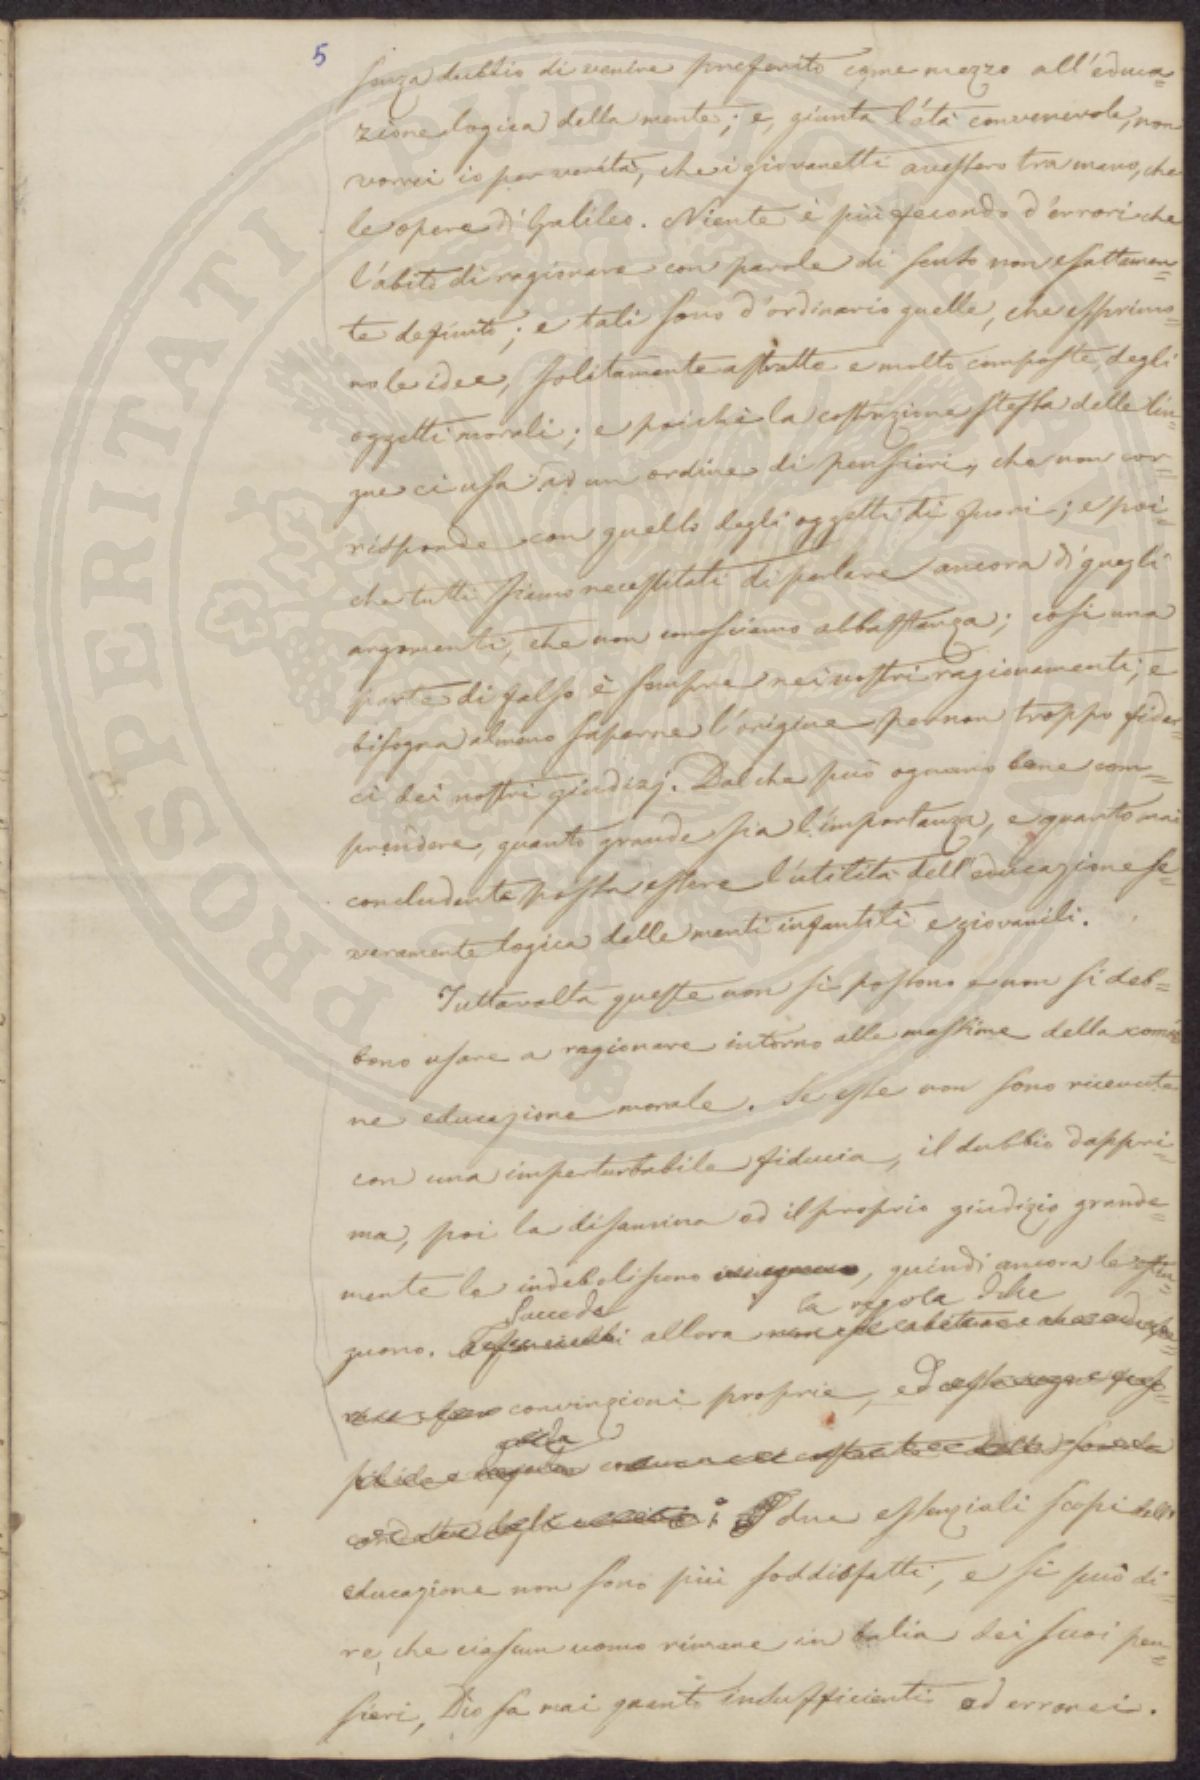 5
senza dubbio di venire preferito come mezzo all'educa=
zione logica della mente; e, giunta l'età convenevole, non
vorrei io per verità, che i giovanetti avessero tra mano, che
le opere di Galileo. Niente è più fecondo d'errori che
l'abito di ragionare con parole di senso non esattamen=
te definito; e tali sono d'ordinario quelle, che esprimo=
no le idee, solitamente astratte e molto composte, degli
oggetti morali; e poichè la costruzione stessa delle lin=
gue ci usa ad un ordine di pensieri, che non cor=
risponde con quello degli oggetti di fuori; e poi=
che tutti siamo necessitati di parlare ancora di quegli
argomenti, che non conosciamo abbastanza; così una
parte di falso è sempre nei nostri ragionamenti; e
bisogna almeno saperne l'origine per non troppo fidar=
ci dei nostri giudizj. Dal che può ognuno bene com=
prendere, quanto grande sia l'importanza, e quanto mai
concludente possa essere l'utilità dell'educazione se=
veramente logica delle menti infantili e giovanili.
Tuttavolta queste non si possono e non si deb=
bono usare a ragionare intorno alle massime della comu
ne educazione morale. Se esse non sono ricevute
con una imperturbabile fiducia, il dubbio dappri=
ma, poi la disamina ed il proprio giudizio grande=
mente le indeboliscono, quindi ancora le estin=
Succede la regola delle
guono. allora
convinzioni proprie, ed
guida
i due essenziali scopi dell'
educazione non sono più soddisfatti, e si può di=
re, che ciascun uomo rimane in balia dei suoi pen=
sieri, Dio sa mai quanto insufficienti ed erronei.
PROSPERITATI PUBLICAE